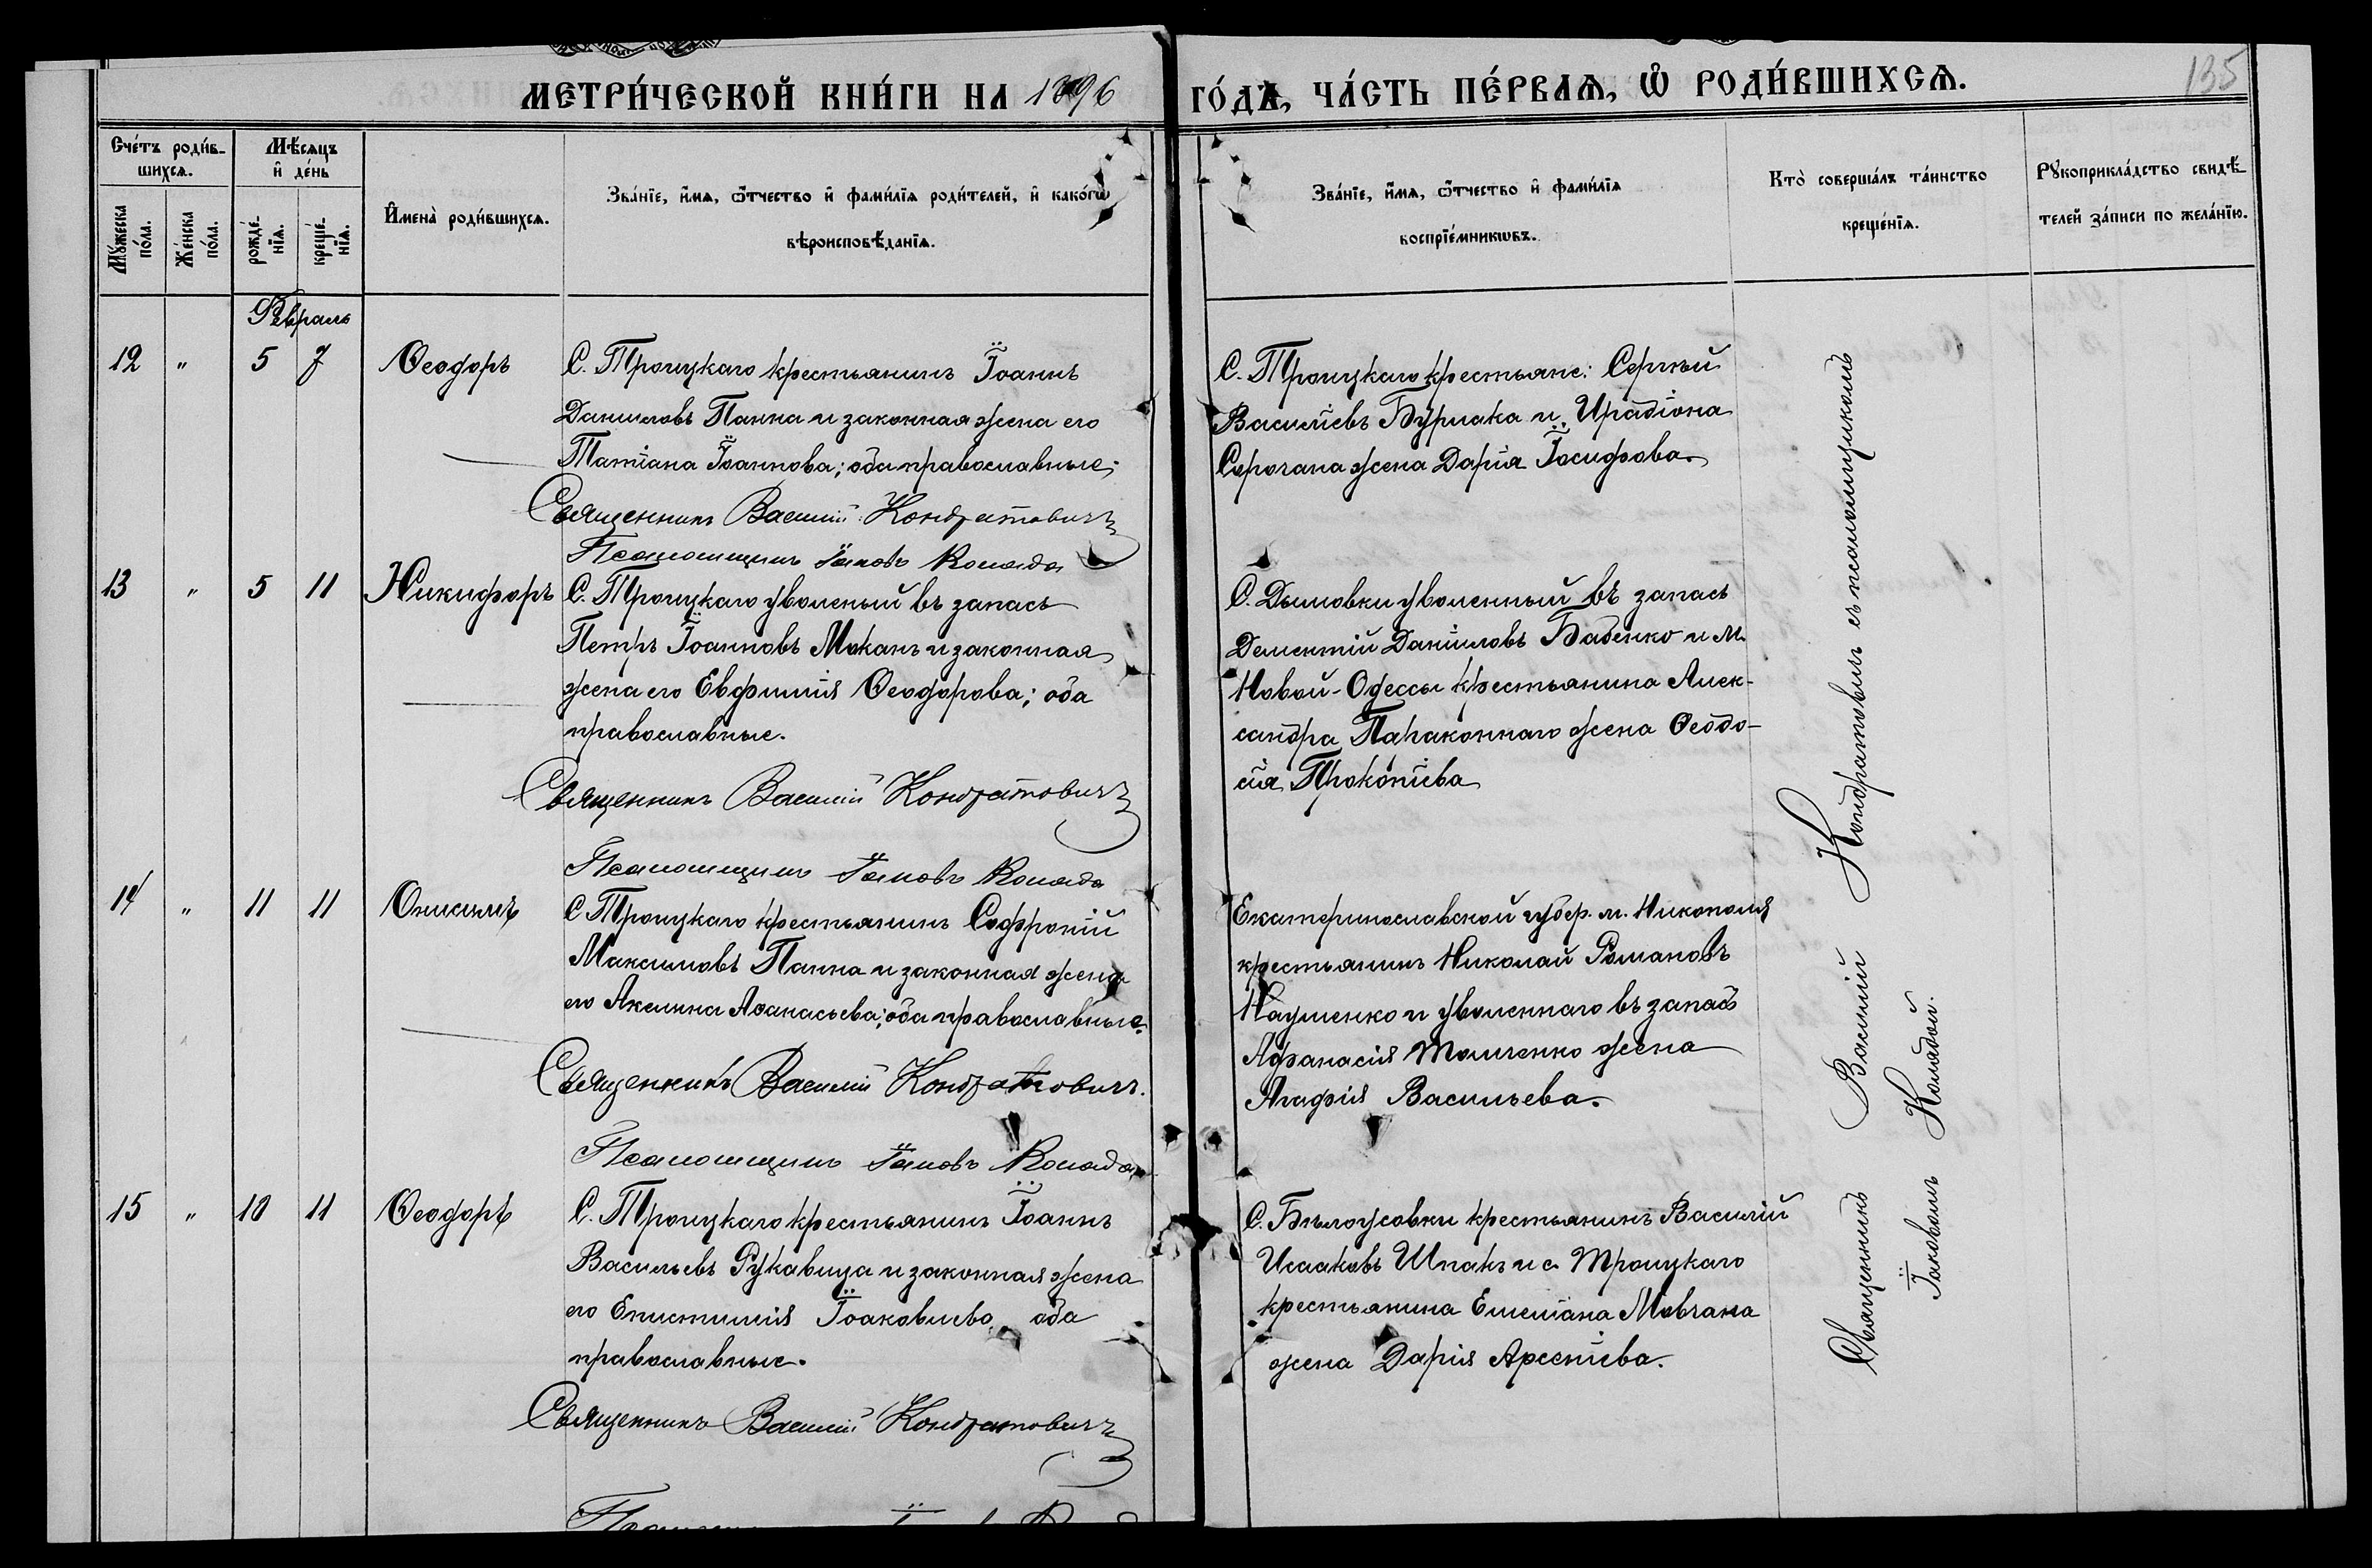 МЕТРИ́ЧЕСКОЙ КНИ́ГИ НА 1896
ГО́ДЪ, ЧА́СТЬ ПЕ́РВАѦ, Ѡ РОДИ́ВШИХСѦ.
135
Сче́тъ роди́в-
шихсѧ.
Мѣ́сѧцъ
и де́нь
Мꙋ́жеска
по́ла.
Же́нска
по́ла.
рожде́-
нїѧ.
креще́-
нїѧ.
Имена̀ роди́вшихсѧ.
Зва́нїе, и́мѧ, ѻ́тчество и фами́лїѧ роди́телей, и како́гѡ
вѣроисповѣ́данїѧ.
Зва́нїе, и́мѧ, ѻ́тчество и фами́лїѧ
воспрїе́мникѡвъ.
Кто̀ соверша́лъ та́инство
креще́нїѧ.
Рꙋкоприкла́дство свидѣ́-
телей за́писи по жела́нїю.
Февраль
12 " 5 7 Ѳеодоръ
С. Троицкаго крестьянинъ Іоаннъ
Даниловъ Панна и законная жена его
Татіана Іоаннова; оба православные;
Священникъ Василій Кондратовичъ
Псаломщикъ Іаковъ Коляда
С. Троицкаго крестьяне: Сергѣй
Василіевъ Бурлака и Иродіона
Сорочана жена Дарія Іосифова.
13 " 5 11 Никифоръ
С. Троицкаго уволеный въ запасъ
Петръ Іоанновъ Моканъ и законная
жена его Евфимія Ѳеодорова; оба
православные.
Священникъ Василій Кондратовичъ
Псаломщикъ Іаковъ Коляда
С. Дымовки уволенный въ запасъ
Дементій Даніиловъ Бабенко и м.
Новой-Одессы крестьянина Алек-
сандра Параконнаго жена Ѳеодо-
сія Прокопіева
14 " 11 11 Онисимъ
С Троицкаго крестьянинъ Софроній
Максимовъ Панна и законная жена
его Акилина Аѳанасьева; оба православные.
Священникъ Василій Кондратовичъ.
Псаломщикъ Іаковъ Коляда
Екатеринославской губер. м. Никополя
крестьянинъ Николай Романовъ
Науменко и уволеннаго въ запасъ
Афанасія Томченко жена
Агафія Васильева.
15 " 10 11 Ѳеодоръ
С. Троицкаго крестьянинъ Іоаннъ
Васильевъ Рукавица и законная жена
его Епистимія Іоаковлева оба
православные.
Священникъ Василій Кондратовичъ
С. Бѣлоусовки крестьянинъ Василій
Исааковъ Шпакъ и с Троицкаго
крестьянина Емеліана Мовчана
жена Дарія Арсеніева.
Священникъ Василій Кондратовичъ съ псаломщикомъ
Іаковомъ Колядой.